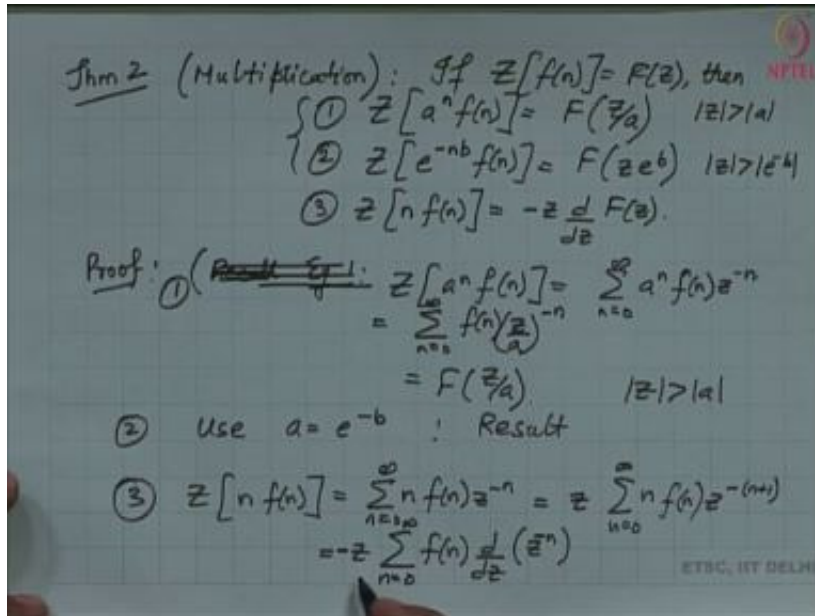 Thm 2 (Multiplication): If Z[f(n)] = F(z), then
NPTEL
① Z[aⁿ f(n)] = F(z/a) |z|>|a|
② Z[e^{-nb} f(n)] = F(z e^b) |z|>|e^{-b}|
③ Z[n f(n)] = -z d/dz F(z).
Proof: ① ( Z[aⁿ f(n)] = ∑_{n=0}^{∞} aⁿ f(n) z^{-n}
= ∑_{n=0}^{∞} f(n) (z/a)^{-n}
= F(z/a). |z|>|a|
② Use a = e^{-b} : Result
③ Z[n f(n)] = ∑_{n=0}^{∞} n f(n) z^{-n} = z ∑_{n=0}^{∞} n f(n) z^{-(n+1)}
= -z ∑_{n=0}^{∞} f(n) d/dz (z^{-n})
ETSC, IIT DELHI